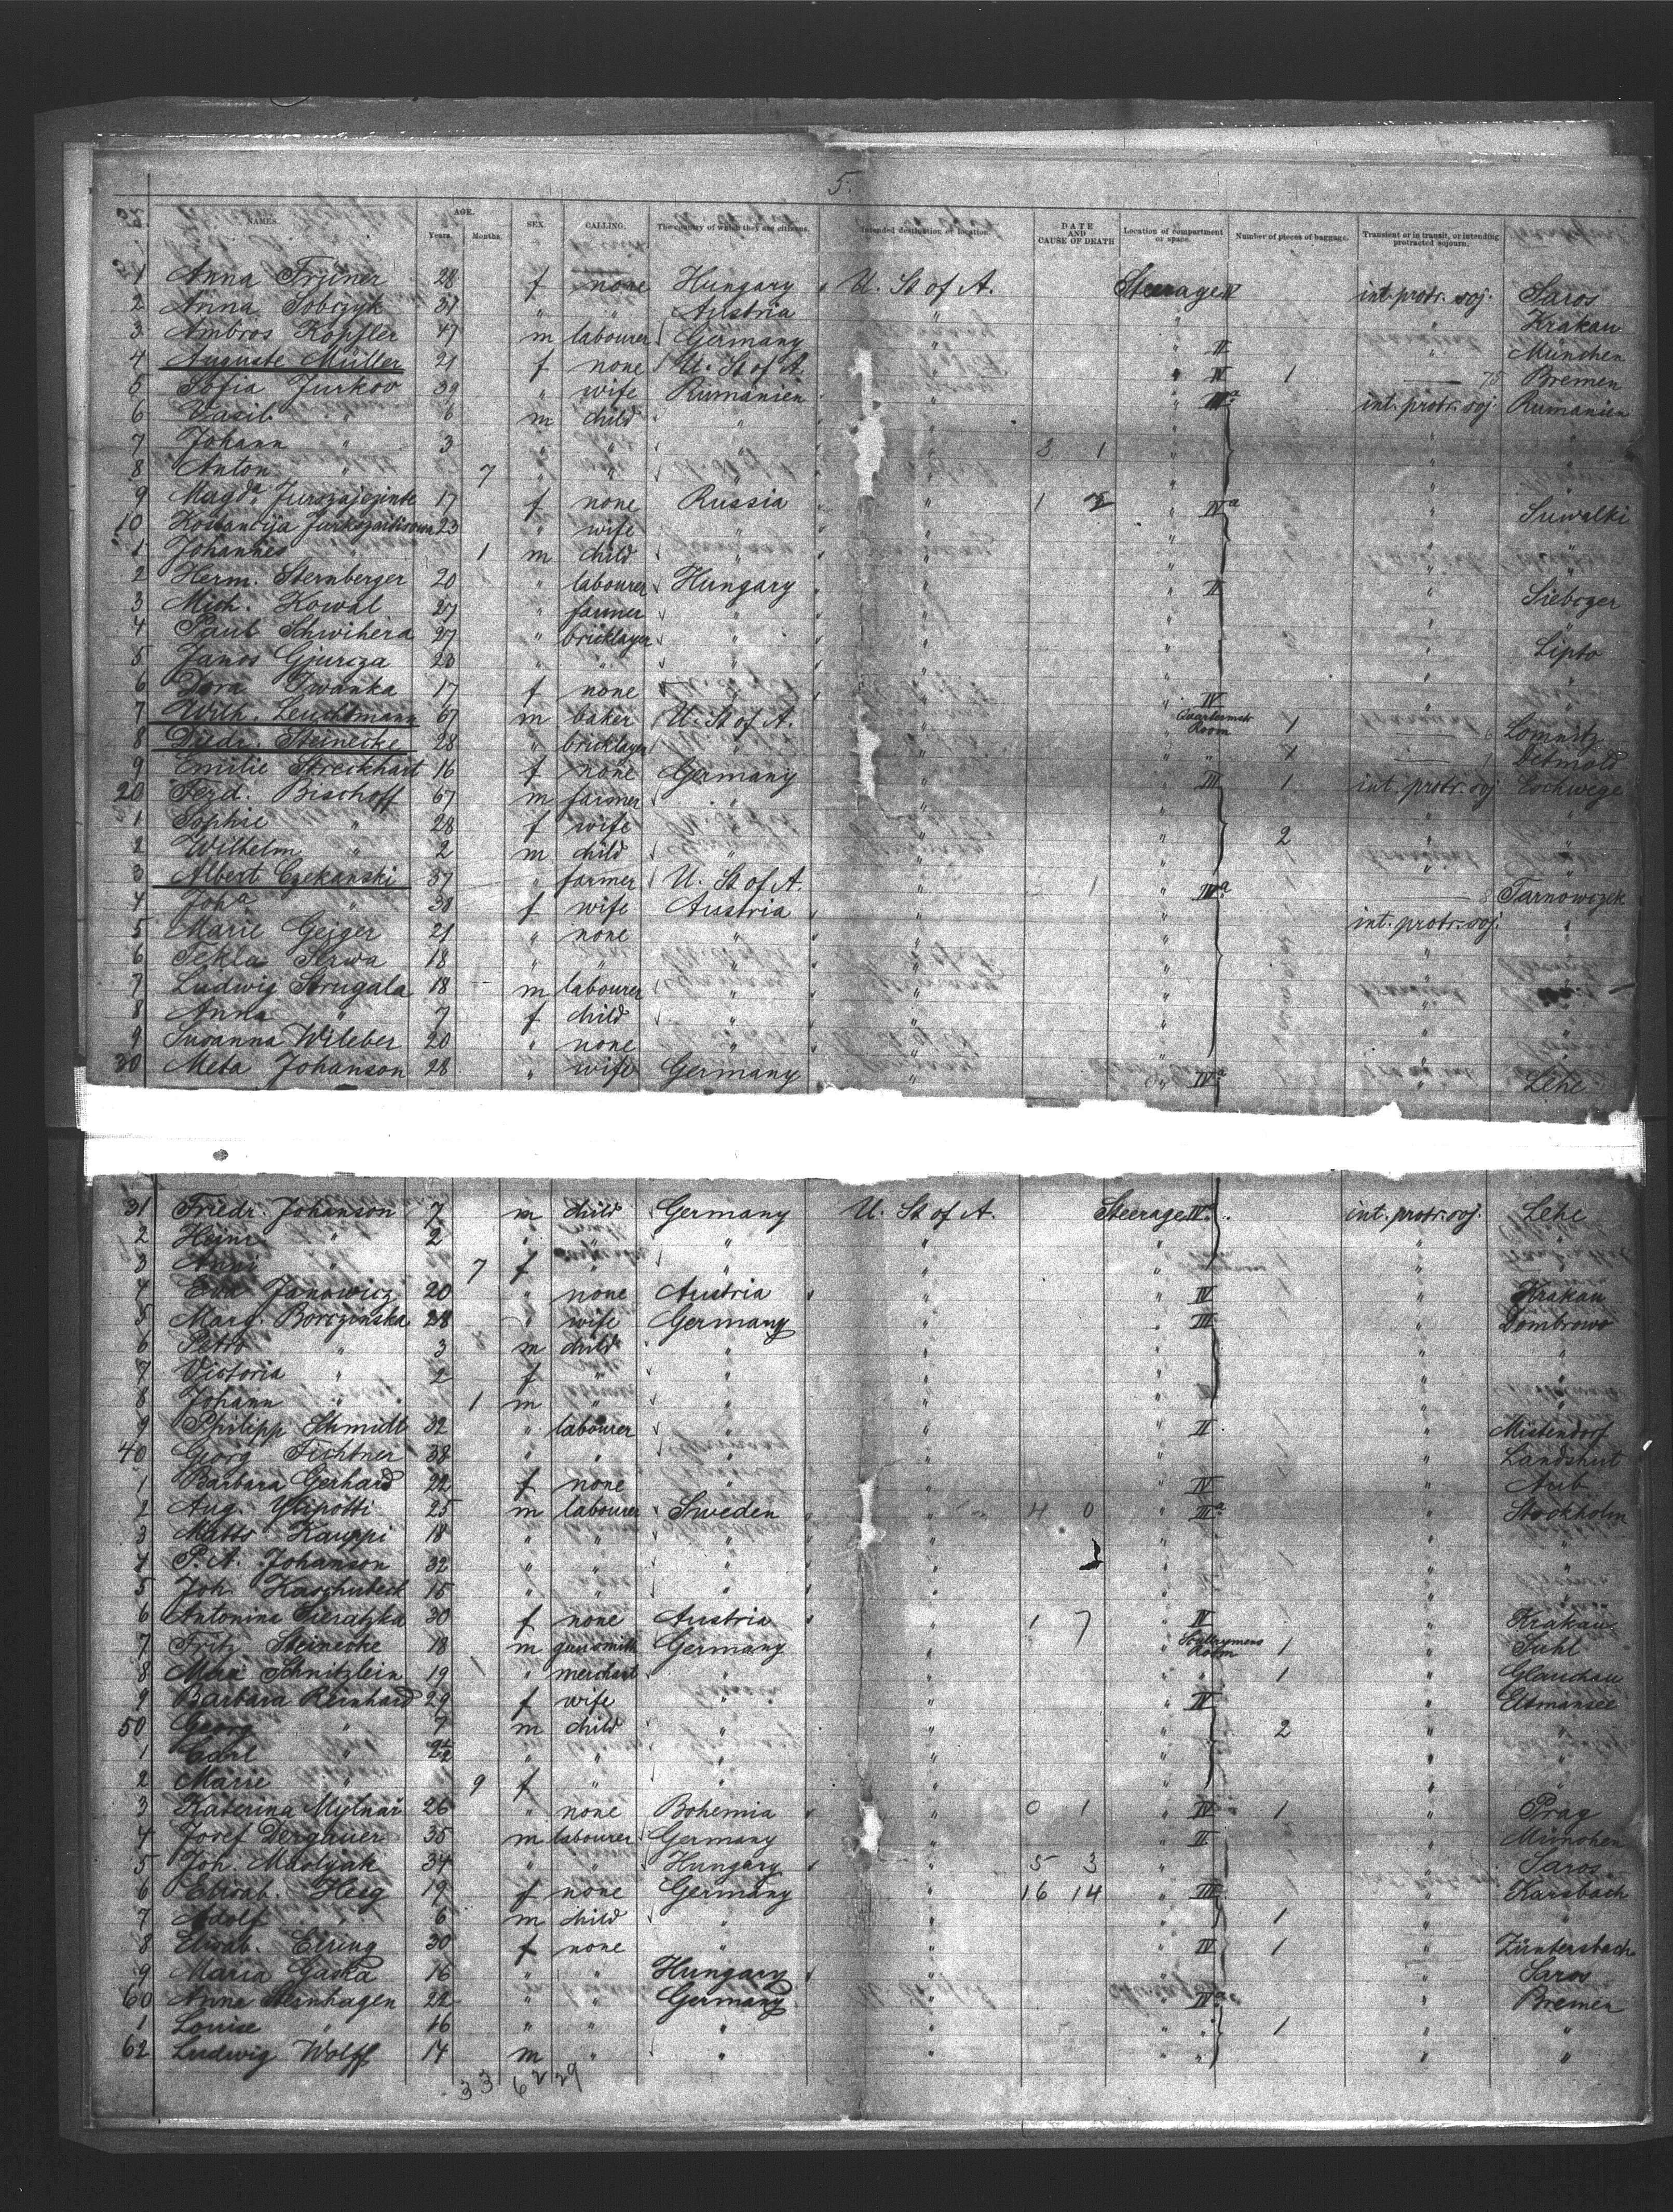 5.
NAMES. AGE. Years. Months. SEX. CALLING. The country of which they are citizens. Intended destination or location. DATE AND CAUSE OF DEATH Location of compartment or space. Number of pieces of baggage. Transient or in transit, or intending protracted sojourn.
1 Anna 28 f none Hungary U. St of A. Steerage IV int. protr. soj. Saros
2 Anna Sobczyk 31 " " Austria " " " Krakau
3 Ambros Köpfler 47 m labourer Germany " " II " München
4 Auguste Müller 21 f none U. St of A. " " IV 1 — 75 Bremen
5 Sofia Jurkov 39 " wife Rumänien " " IIIa int. protr. soj. Rumänien
6 Vasil " 6 m child " " " " "
7 Johann " 3 " " " " 3 1 " " "
8 Anton " 7 " " " " " " "
9 Magda 17 f none Russia " 1 2 " IVa " Suwalki
10 23 " wife " " " " "
1 Johannes " 1 m child " " " " "
2 Herm. Sternberger 20 " labourer Hungary " " II "
3 Mich. Kowal 27 " farmer " " " " "
4 Paul Schwihera 27 " bricklayer " " " " Lipto
5 Janos Gjurcza 23 " " " " " " "
6 Dora Iwanka 17 f none " " " IV " "
7 Wilh. Leuchtmann 67 m baker U. St of A. " Quartermst. Room 1 — 6 Lomnitz
8 Diedr. Steinecke 28 " bricklayer " " " " 1 — 7 Detmold
9 Emilie Streckhart 16 f none Germany " " III 1 int. protr. soj. Eschwege
20 Ferd. Bischoff 67 m farmer " " " " "
1 Sophie " 28 f wife " " " 2 " "
2 Wilhelm " 2 m child " " " " "
3 Albert Czekanski 37 " farmer U. St of A. " 1 " IVa — 8 Tarnowczek
4 Joha " 30 f wife Austria " " int. protr. soj. "
5 Marie Geiger 21 " none " " " " "
6 Tekla Strwa 18 " " " " " "
7 Ludwig Strugala 18 m labourer " " " "
8 Anna " 7 f child " " " " "
9 Susanna Wileber 20 " none " " " " "
30 Meta Johanson 28 " wife Germany " " IVa " Lehe
31 Friedr. Johanson 7 m child Germany U. St of A. Steerage IVa int. protr. soj. Lehe
2 Heinr " 2 " " " " " " "
3 Anni " 7 f " " " " "
4 Eva Janowicz 20 " none Austria " " IV " Krakau
5 Marg. Borczinska 28 " wife Germany " " III " Dombrowo
6 Petro " 3 m child " " " " "
7 Victoria " 2 f " " " " " "
8 Johann " 1 m " " " " " "
9 Philipp Schmidt 32 " labourer " " " II " Mistendorf
40 Georg Fichtner 38 " " " " " " Landshut
1 Barbara Gerhard 22 f none " " " IV " Aub
2 Aug. Ylipotti 25 m labourer Sweden " 4 0 " IIIa " Stockholm
3 Matts Kauppi 18 " " " " " " "
4 P. A. Johanson 32 " " " " " " "
5 Joh. Kaschubeck 15 " " " " " " "
6 Antonina Sieratzka 30 f none Austria " 1 7 " IV " Krakau
7 Fritz Steinecke 18 m gunsmith Germany " Room 1 " Suhl
8 Max Schnitzlein 19 " merchant " " " " 1 " Glauchau
9 Barbara Reinhard 29 f wife " " " IV " Eltmansee
50 Georg " 7 m child " " " 2 " "
1 Carl " 2½ " " " " " " "
2 Marie " 9 f " " " " " "
3 Katerina Mylnar 26 " none Bohemia " 0 1 " IV 1 " Prag
4 Josef Dergauer 35 m labourer Germany " " II " München
5 Joh. Maolyak 34 " " Hungary " 5 3 " " Saros
6 Elisab. Heeg 19 f none Germany " 16 14 " III " Karsbach
7 Adolf " 6 m child " " " 1 " "
8 Elisab. Elring 30 f none " " " IV 1 " Züntersbach
9 Maria Gaska 16 " " Hungary " " " Saros
60 Anna Steinhagen 22 " " Germany " " IVa " Bremen
1 Louise " 16 " " " " " " 1 " "
62 Ludwig Wolff 14 m " " " " " " "
33 62 29